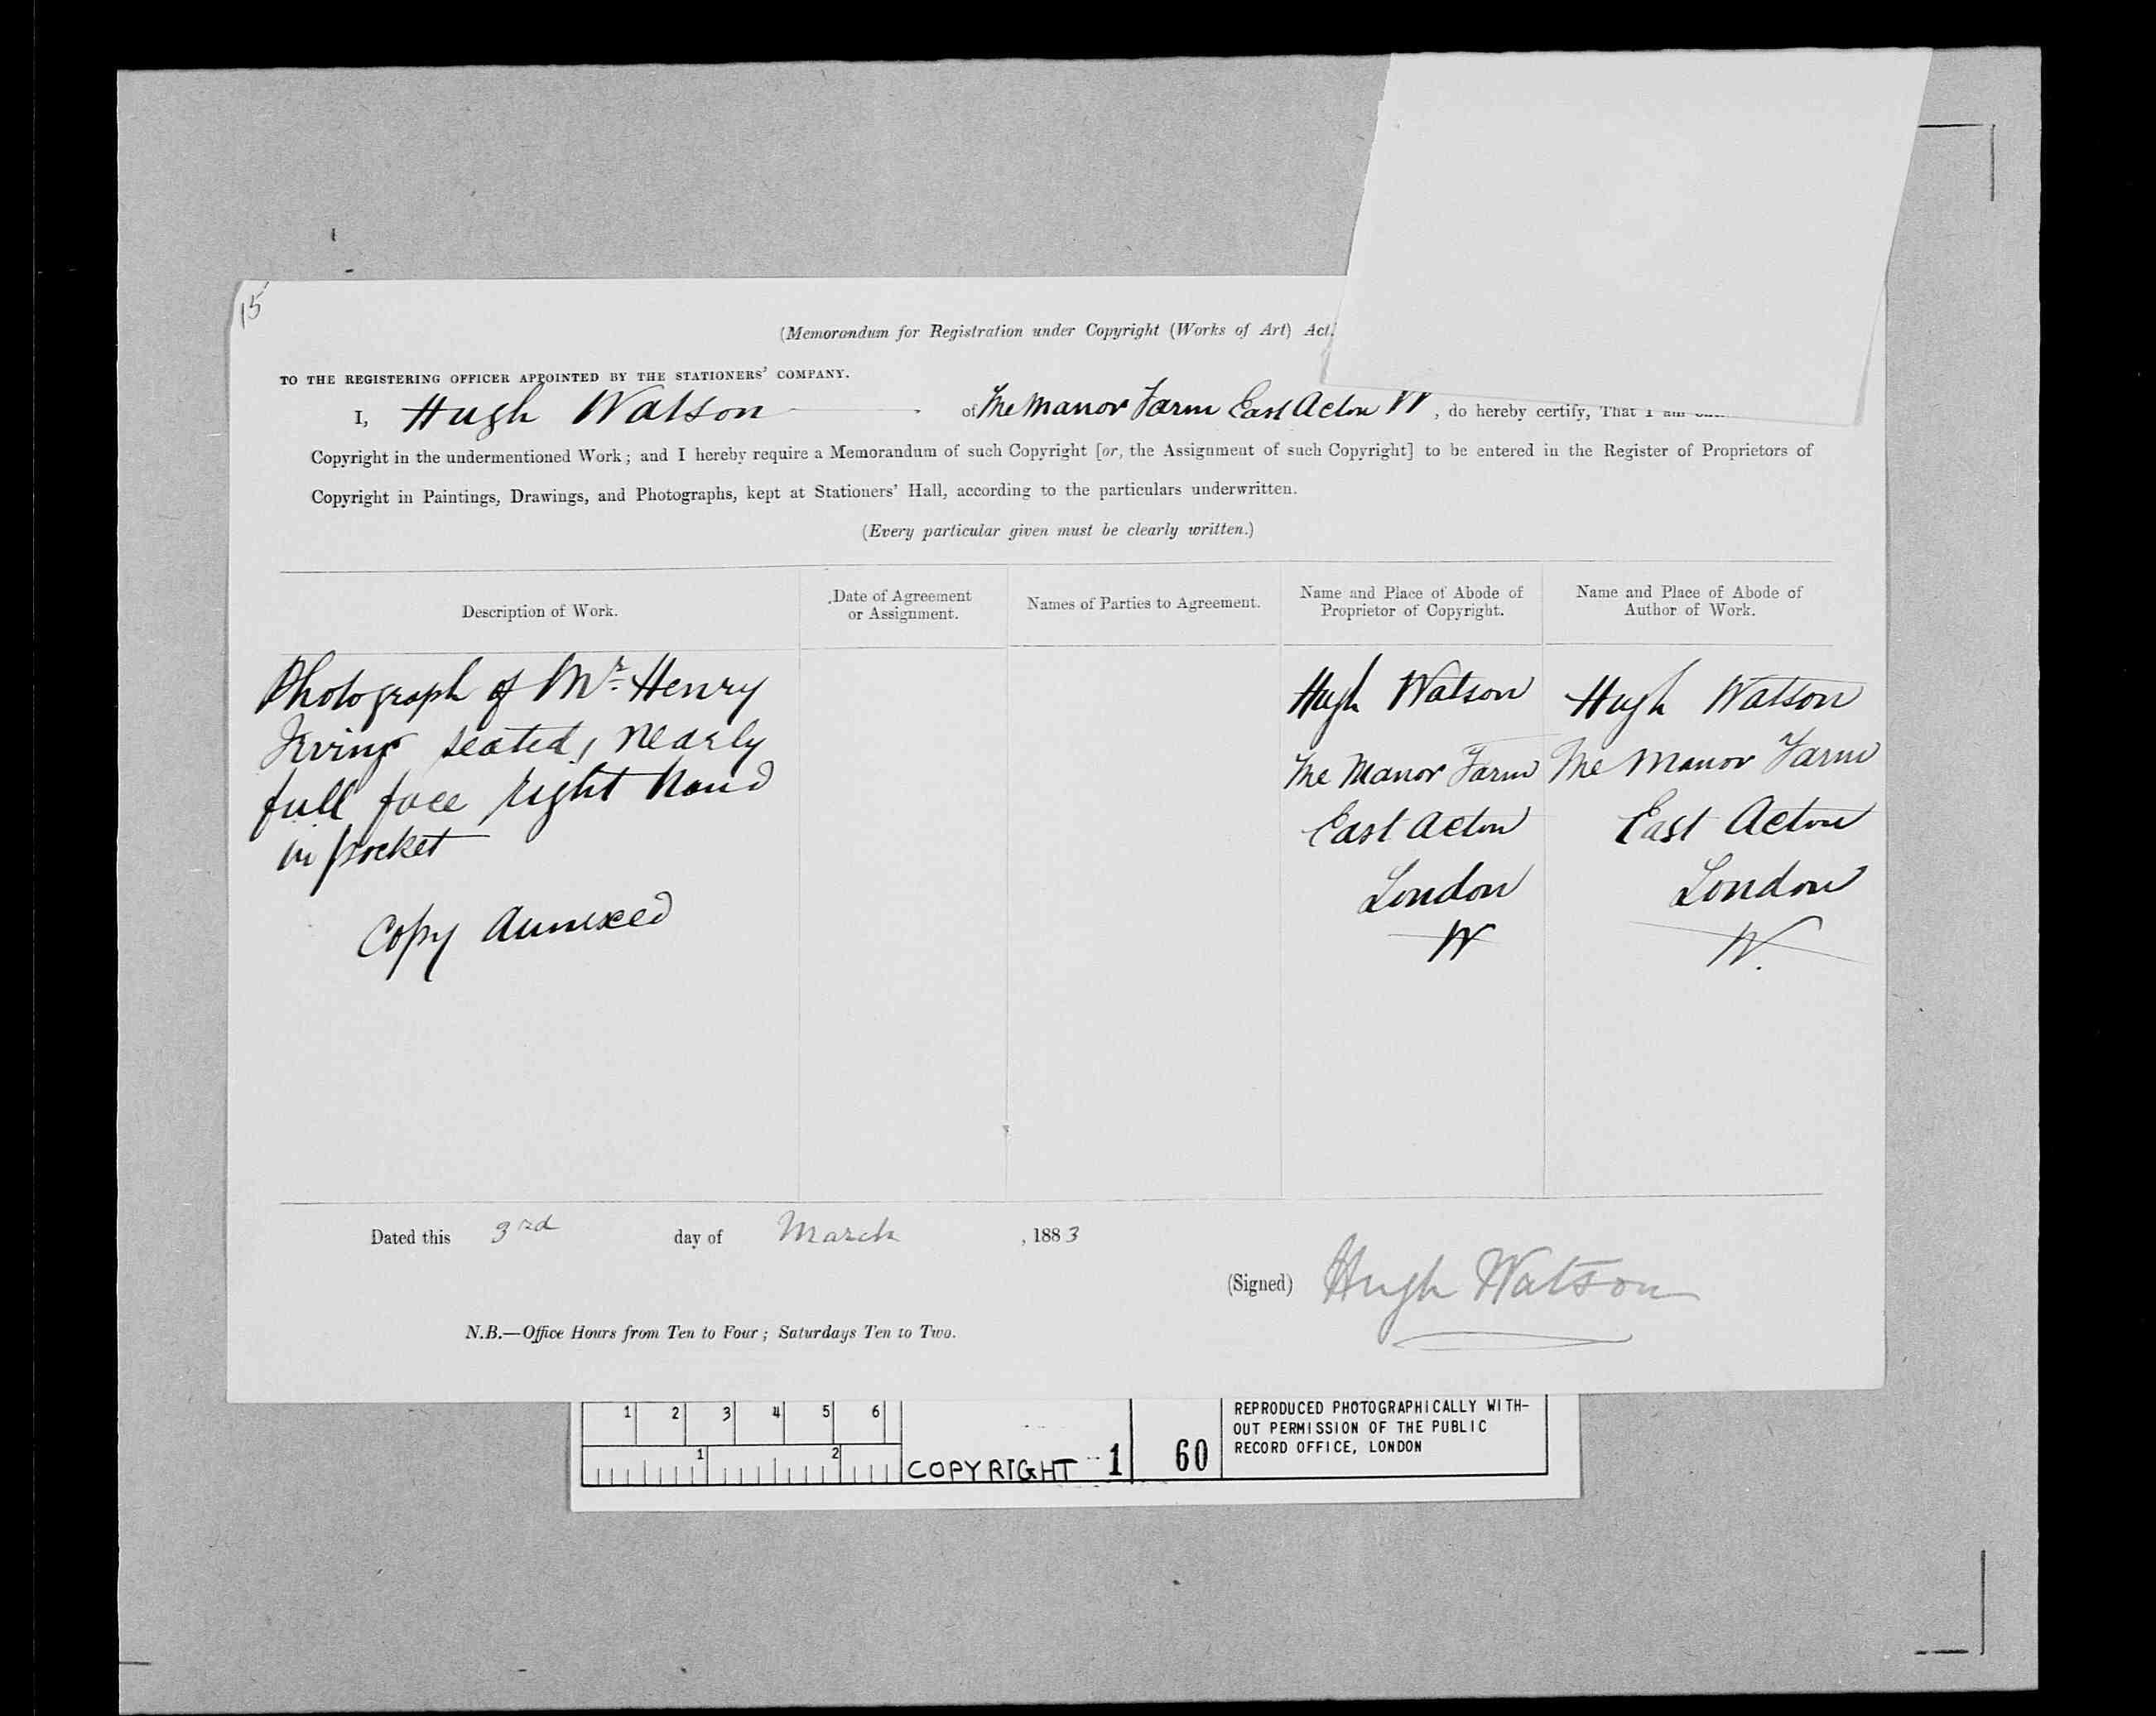 15
(Memorandum for Registration under Copyright (Works of Art) Act.
TO THE REGISTERING OFFICER APPOINTED BY THE STATIONERS' COMPANY.
I, Hugh Watson of The Manor Farm East Acton W, do hereby certify, That I am
Copyright in the undermentioned Work; and I hereby require a Memorandum of such Copyright [or, the Assignment of such Copyright] to be entered in the Register of Proprietors of
Copyright in Paintings, Drawings, and Photographs, kept at Stationers' Hall, according to the particulars underwritten.
(Every particular given must be clearly written.)
Description of Work.
Date of Agreement
or Assignment.
Names of Parties to Agreement.
Name and Place of Abode of
Proprietor of Copyright.
Name and Place of Abode of
Author of Work.
Photograph of Mr. Henry
Irving seated, nearly
full face right hand
in pocket
Copy Annexed
Hugh Watson
The Manor Farm
East Acton
London
W
Hugh Watson
The Manor Farm
East Acton
London
W.
Dated this 3rd day of March, 1883
(Signed) Hugh Watson
N.B.—Office Hours from Ten to Four; Saturdays Ten to Two.
1 2 3 4 5 6
1 2
COPYRIGHT - 1 60
REPRODUCED PHOTOGRAPHICALLY WITH-
OUT PERMISSION OF THE PUBLIC
RECORD OFFICE, LONDON